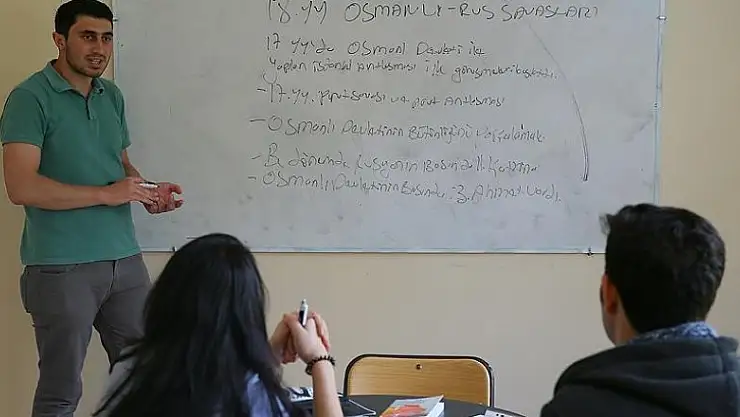 18. yy OSMANLI-RUS SAVAŞLARI
17 yy'da OSMANLI Devleti ile
yapılan İstanbul Antlaşması ile görüşmeler başladı.
-17.yy. Prut savaşı ve Prut Antlaşması
- OSMANLI Devletinin Bütünlüğünü
- Bu dönemde Rusyanın Başında II.
- OSMANLI Devletinin Başında 3. Ahmet vardı.